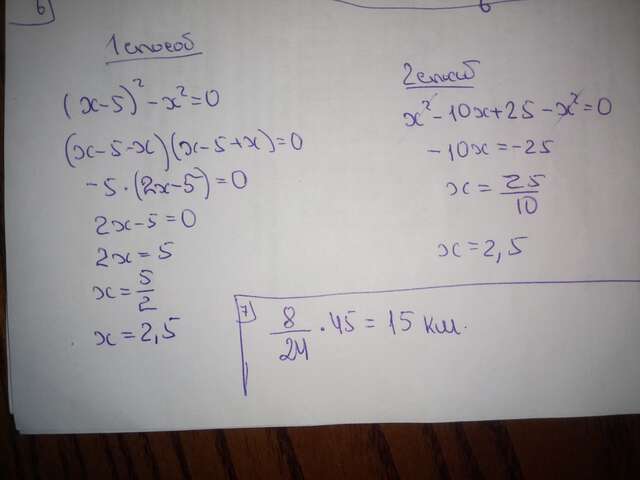 6)
1 способ
(x-5)² - x² = 0
(x-5-x)(x-5+x) = 0
-5·(2x-5) = 0
2x-5 = 0
2x = 5
x = 5/2
x = 2,5
2 способ
x² - 10x + 25 - x² = 0
-10x = -25
x = 25/10
x = 2,5
7) 8/24 · 45 = 15 км.